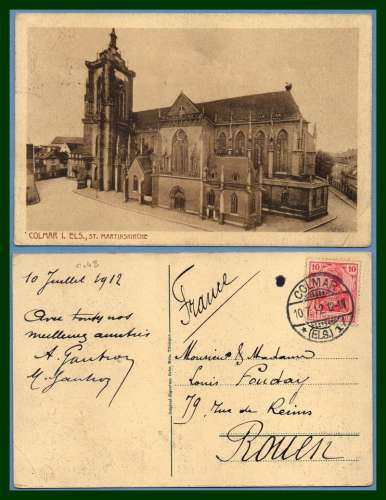 COLMAR I. ELS., ST. MARTINSKIRCHE
10 Juillet 1912
Avec toutes nos
meilleures amitiés
A. Gautroy
M. Gautroy
France
10 10
COLMAR
10. 12-1N
* (ELS.) 1
Monsieur & Madame
Louis Fouday
79 Rue de Reims
Rouen